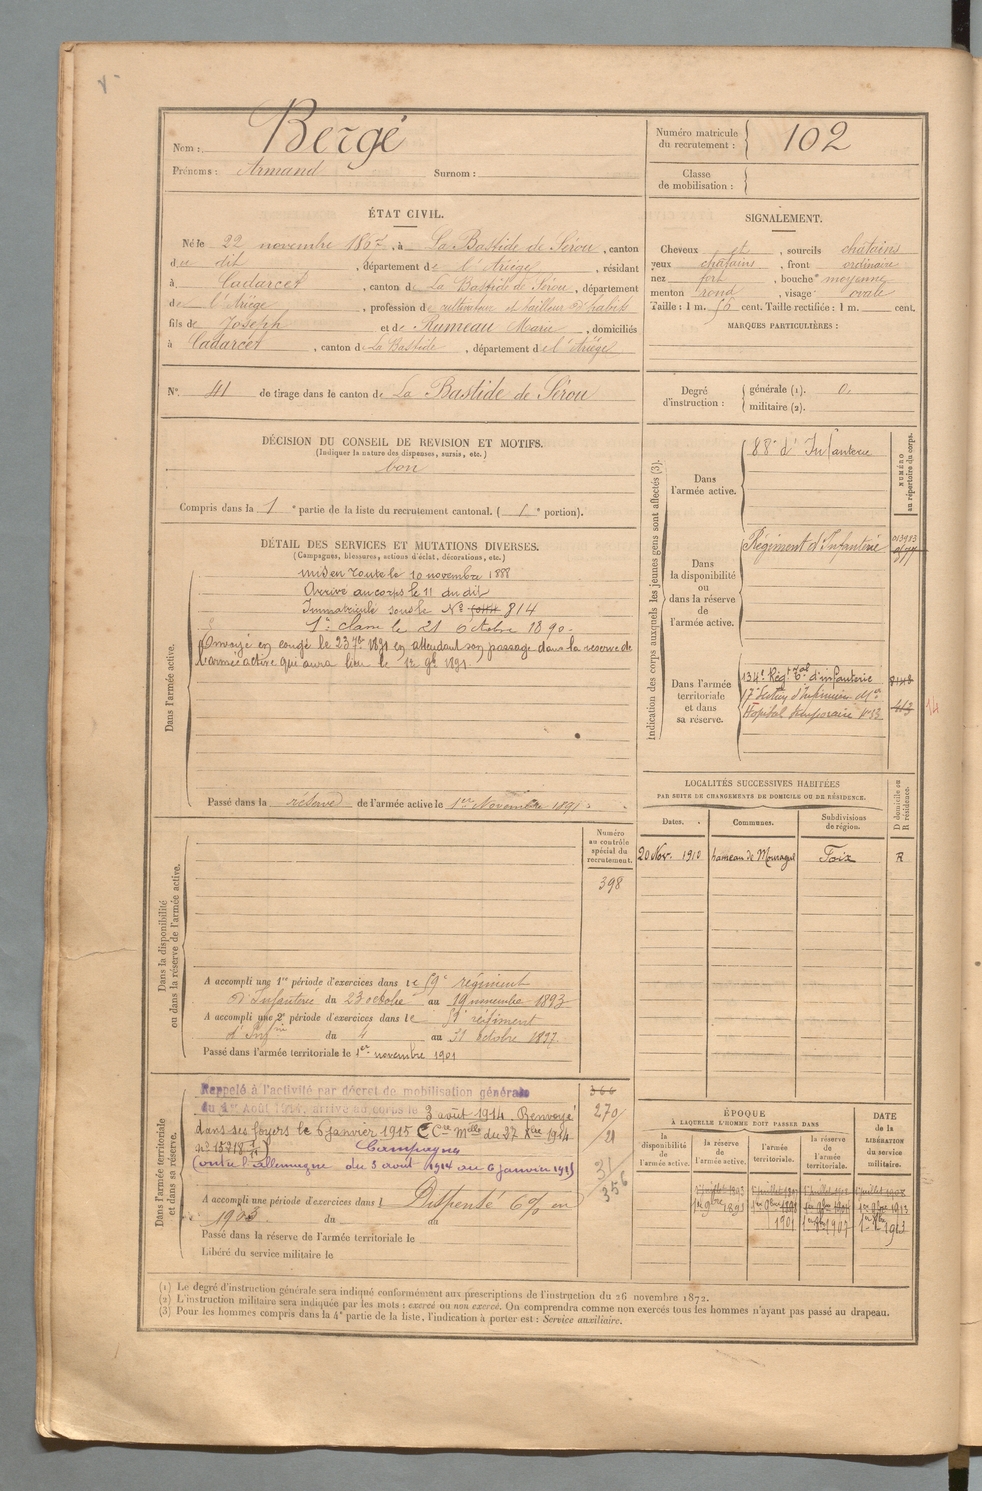 Nom : Bergé
Prénoms : Armand Surnom :
Numéro matricule du recrutement : 102
Classe de mobilisation :
ÉTAT CIVIL.
Né le 22 novembre 1867, à La Bastide de Sérou, canton
du dit, département de l'Ariège, résidant
à Cadarcet, canton de La Bastide de Sérou, département
de l'Ariège, profession de cultivateur et tailleur d'habits
fils de Joseph et de Rumeau Marie, domiciliés
à Cadarcet, canton de La Bastide, département de l'Ariège
N° 41 de tirage dans le canton de La Bastide de Sérou
SIGNALEMENT.
Cheveux et, sourcils chatains
yeux chatains, front ordinaire
nez fort, bouche moyenne
menton rond, visage ovale
Taille : 1 m. 56 cent. Taille rectifiée : 1 m. cent.
MARQUES PARTICULIÈRES :
Degré d'instruction : générale (1). 0.
militaire (2).
DÉCISION DU CONSEIL DE REVISION ET MOTIFS.
(Indiquer la nature des dispenses, sursis, etc.)
bon
Compris dans la 1e partie de la liste du recrutement cantonal. ( 1e portion).
DÉTAIL DES SERVICES ET MUTATIONS DIVERSES.
(Campagnes, blessures, actions d'éclat, décorations, etc.)
Dans l'armée active.
mis en route le 10 novembre 1888
Arrivé au corps le 11 du dit
Immatriculé sous le N° 814
1re classe le 21 octobre 1890.
Envoyé en congé le 23 7bre 1891 en attendant son passage dans la réserve de
l'armée active qui aura lieu le 1er 9bre 1891
Passé dans la réserve de l'armée active le 1er Novembre 1891.
Indication des corps auxquels les jeunes gens sont affectés (3).
NUMÉRO au répertoire du corps.
Dans l'armée active.
88e d'Infanterie
Dans la disponibilité ou dans la réserve de l'armée active.
Régiment d'Infanterie
013913
Dans l'armée territoriale et dans sa réserve.
134e Régt Tal d'infanterie
17e Section d'Infirmiers
Hopital temporaire
413
14
LOCALITÉS SUCCESSIVES HABITÉES
PAR SUITE DE CHANGEMENTS DE DOMICILE OU DE RÉSIDENCE.
Dates. Communes. Subdivisions de région. D domicile ou R résidence.
20 Nov. 1910 hameau de Foix R
Dans la disponibilité ou dans la réserve de l'armée active.
Numéro au contrôle spécial du recrutement.
398
A accompli une 1re période d'exercices dans le 59e régiment
d'Infanterie du 23 octobre au 19 novembre 1893
A accompli une 2e période d'exercices dans le 59e régiment
d'Infrie du 4 au 31 octobre 1897
Passé dans l'armée territoriale le 1er novembre 1901
Dans l'armée territoriale et dans sa réserve.
Rappelé à l'activité par décret de mobilisation générale
du 1er Août 1914, arrivé au corps le 3 août 1914. Renvoyé
dans ses foyers le 6 janvier 1915 Cre Mlle du 27 Xbre 1914
n° 15218
Campagne
Contre l'Allemagne du 3 août 1914 au 6 janvier 1915
366
270
28
31
356
A accompli une période d'exercices dans l Dispensé 6% en
1903 du au
Passé dans la réserve de l'armée territoriale le
Libéré du service militaire le
ÉPOQUE
À LAQUELLE L'HOMME DOIT PASSER DANS
la disponibilité de l'armée active. la réserve de l'armée active. l'armée territoriale. la réserve de l'armée territoriale.
DATE de la LIBÉRATION du service militaire.
1er 9bre 1891
1901
1er 9bre 1907
1er 9bre 1913
(1) Le degré d'instruction générale sera indiqué conformément aux prescriptions de l'instruction du 26 novembre 1872.
(2) L'instruction militaire sera indiquée par les mots : exercé ou non exercé. On comprendra comme non exercés tous les hommes n'ayant pas passé au drapeau.
(3) Pour les hommes compris dans la 4e partie de la liste, l'indication à porter est : Service auxiliaire.